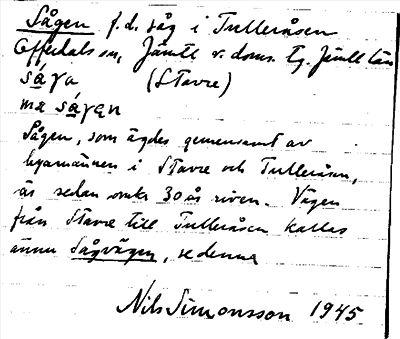 Sågen f.d. såg i Tulleråsen
Offerdals sn, Jämtl v. doms. tg. Jämtl län
såga (Stavre)
mæ ságen
Sågen, som ägdes gemensamt av
byamännen i Stavre och Tulleråsen,
är sedan omkr 30 år riven. Vägen
från Stavre till Tulleråsen kallas
ännu Sågvägen, se denna
Nils Simonsson 1945